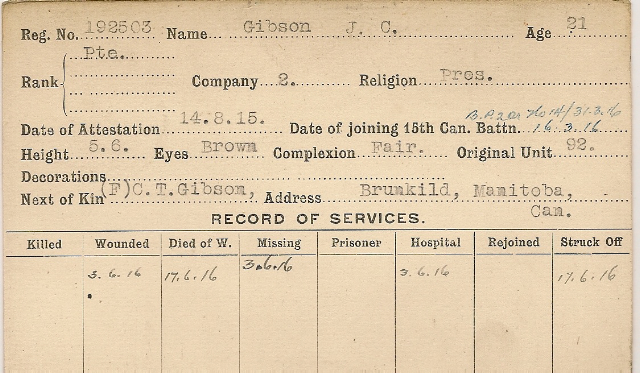 Reg. No. 192503 Name Gibson J. C. Age 21
Rank Pte. Company 2. Religion Pres.
B.P.2 a2 No 14/31.3.16
Date of Attestation 14.8.15. Date of joining 15th Can. Battn. 16.3.16
Height 5.6. Eyes Brown Complexion Fair. Original Unit 92.
Decorations
Next of Kin (F)C.T.Gibson, Address Brunkild, Manitoba,
Can.
RECORD OF SERVICES.
Killed Wounded Died of W. Missing Prisoner Hospital Rejoined Struck Off
3.6.16 17.6.16 3.6.16 3.6.16 17.6.16